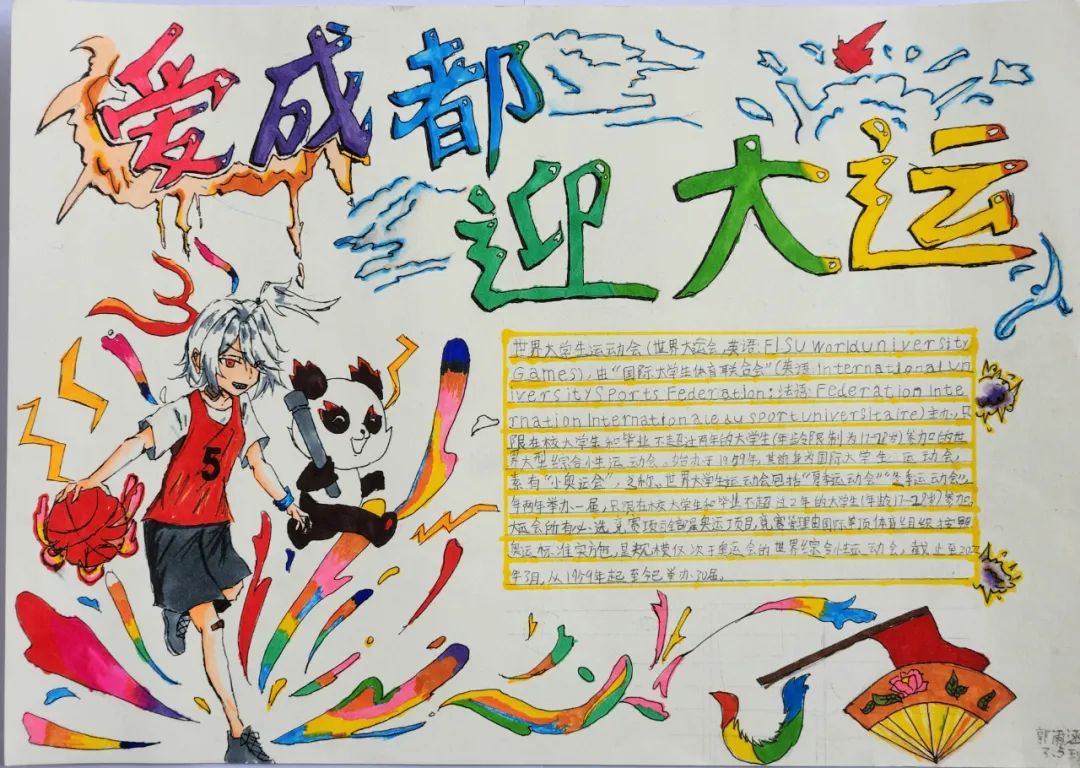 爱成都
迎大运
世界大学生运动会(世界大运会,英语:FISU World university
Games),由“国际大学生体育联合会”(英语:International Un
iversity Sports Federation;法语:Federation Inte
rnation Internationale du sport universitaire)主办,只
限在校大学生和毕业不超过两年的大学生(年龄限制为17-28岁)参加的世
界大型综合性运动会。始办于1959年,其前身为国际大学生运动会,
素有“小奥运会”之称。世界大学生运动会包括“夏季运动会”“冬季运动会”
年两年举办一届,只限在校大学生和毕业不超过2年的大学生(年龄17-28岁)参加
大运会所有必、选竞赛项目全部是奥运项目,竞赛管理由国际单项体育组织按照
奥运标准实施,且规模仅次于奥运会的世界综合性运动会,截止至20
年3月,从1959年起至今已举办30届。
5
郭雨涵
3.5班